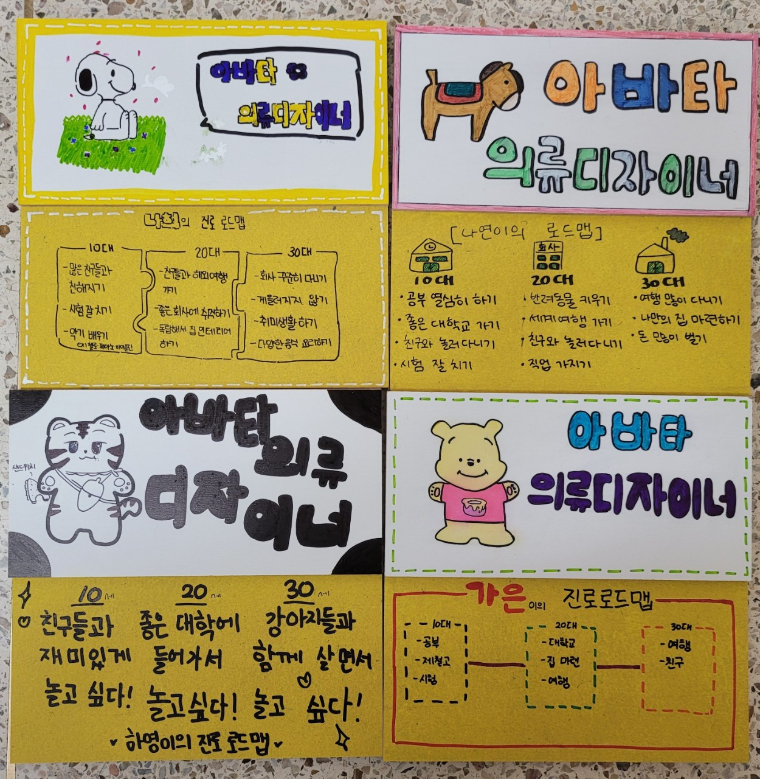 아바타
의류디자이너
아바타
의류디자이너
의 진로 로드맵
10대
- 많은 친구들과
친해지기
- 시험 잘 치기
- 악기 배우기
20대
- 친구들과 해외여행
가기
- 좋은 회사에 취직하기
- 독립해서 집 인테리어
하기
30대
- 회사 꾸준히 다니기
- 게을러지지 않기
- 취미생활 하기
- 다양한 음식 요리하기
[나연이의 로드맵]
10대
• 공부 열심히 하기
• 좋은 대학교 가기
• 친구와 놀러다니기
• 시험 잘 치기
회사
20대
• 반려동물 키우기
• 세계여행 가기
• 친구와 놀러다니기
• 직업 가지기
30대
• 여행 많이 다니기
• 나만의 집 마련하기
• 돈 많이 벌기
아바타
의류
디자
이너
샌드위치
아바타
의류디자이너
10대
친구들과
재미있게
놀고 싶다!
20대
좋은 대학에
들어가서
놀고싶다!
30대
강아지들과
함께 살면서
놀고 싶다!
하영이의 진로 로드맵
가은이의 진로로드맵
10대
- 공부
- 시험
20대
- 대학교
- 집 마련
- 여행
30대
- 여행
- 친구